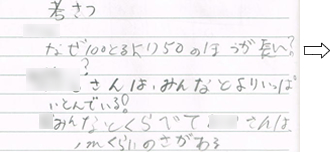 考さつ
なぜ100とるより50のほうが長い?
?
さんは、みんなとよりいっぱ
いとんでいる!
みんなとくらべて さんは
くらいのさがある